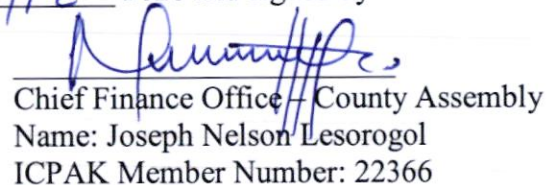 Chief Finance Office – County Assembly
Name: Joseph Nelson Lesorogol
ICPAK Member Number: 22366